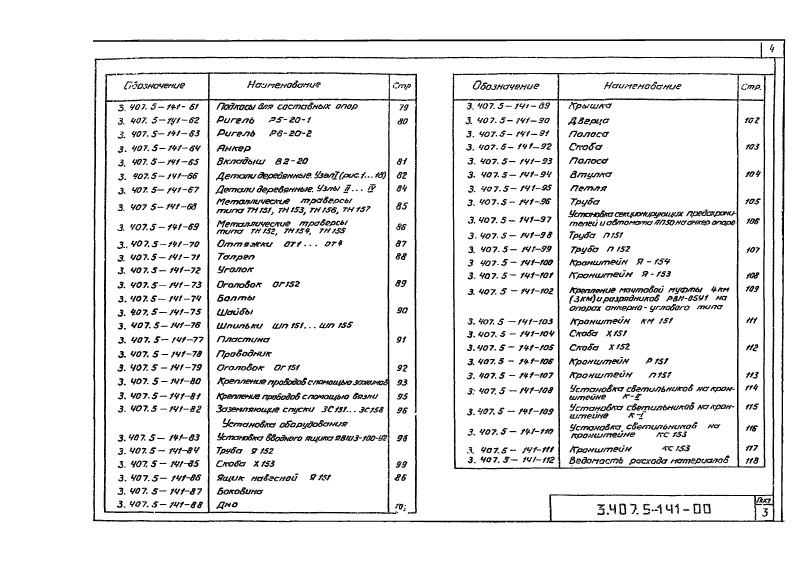 4
Обозначение Наименование Стр
3. 407. 5-141-61 Подкосы для составных опор 79
3. 407. 5-141-62 Ригель Р5-20-1 80
3. 407. 5-141-63 Ригель Р6-20-2
3. 407. 5-141-64 Анкер
3. 407. 5-141-65 Вкладыш В2-20 81
3. 407. 5-141-66 Детали деревянные. Узел I (рис.1...18) 82
3. 407. 5-141-67 Детали деревянные. Узлы II... IV 84
3. 407 5-141-68 Металлические траверсы типа ТН 151, ТН 153, ТН 156, ТН 157 85
3. 407. 5-141-69 Металлические траверсы типа ТН 152, ТН 154, ТН 155 86
3. 407. 5-141-70 Оттяжки ОТ1... ОТ4 87
3. 407. 5-141-71 Талреп 88
3. 407. 5-141-72 Уголок
3. 407. 5-141-73 Оголовок ОГ152 89
3. 407. 5-141-74 Болты
3. 407. 5-141-75 Шайбы 90
3. 407. 5-141-76 Шпильки ШП 151... ШП 155
3. 407. 5-141-77 Пластина 91
3. 407. 5-141-78 Проводник
3. 407. 5-141-79 Оголовок ОГ 151 92
3. 407. 5-141-80 Крепление проводов с помощью зажимов 93
3. 407. 5-141-81 Крепление проводов с помощью вязки 95
3. 407. 5-141-82 Заземляющие спуски ЗС151...ЗС158 96
Установка оборудования
3. 407. 5-141-83 Установка вводного ящика ЯВШЗ-100-У2 98
3. 407. 5-141-84 Труба Я 152
3. 407. 5-141-85 Скоба Х 153 99
3. 407. 5-141-86 Ящик навесной Я 151 86
3. 407. 5-141-87 Боковина
3. 407. 5-141-88 Дно
Обозначение Наименование Стр.
3. 407. 5-141-89 Крышка
3. 407. 5-141-90 Дверца 102
3. 407. 5-141-91 Полоса
3. 407. 5-141-92 Скоба 103
3. 407. 5-141-93 Полоса
3. 407. 5-141-94 Втулка 104
3. 407. 5-141-95 Петля
3. 407. 5-141-96 Труба 105
3. 407. 5-141-97 Установка секционирующих предохрани-
телей и автомата АП50 на анкер опоре 106
3. 407. 5-141-98 Труба П 151
3. 407. 5-141-99 Труба П 152 107
3 407. 5-141-100 Кронштейн Я-154
3. 407. 5-141-101 Кронштейн Я-153 108
3. 407. 5-141-102 Крепление мачтовой муфты 4КМ 109
(3КМ) и разрядников РВН-05У1 на
опорах анкерно-углового типа
3. 407. 5-141-103 Кронштейн КМ 151 111
3. 407. 5-141-104 Скоба Х 151
3. 407. 5-141-105 Скоба Х 152 112
3. 407. 5-141-106 Кронштейн Р 151
3. 407. 5-141-107 Кронштейн П 151 113
3. 407. 5-141-108 Установка светильников на крон- 114
штейне К-II
3. 407. 5-141-109 Установка светильников на крон- 115
штейне К-I
3. 407. 5-141-110 Установка светильников на 116
кронштейне КС 153
3. 407. 5-141-111 Кронштейн КС 153 117
3. 407. 5-141-112 Ведомость расхода материалов 118
3.407.5-141-00
Лист
3